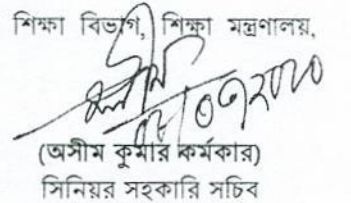 শিক্ষা বিভাগ, শিক্ষা মন্ত্রণালয়,
(অসীম কুমার কর্মকার)
সিনিয়র সহকারি সচিব